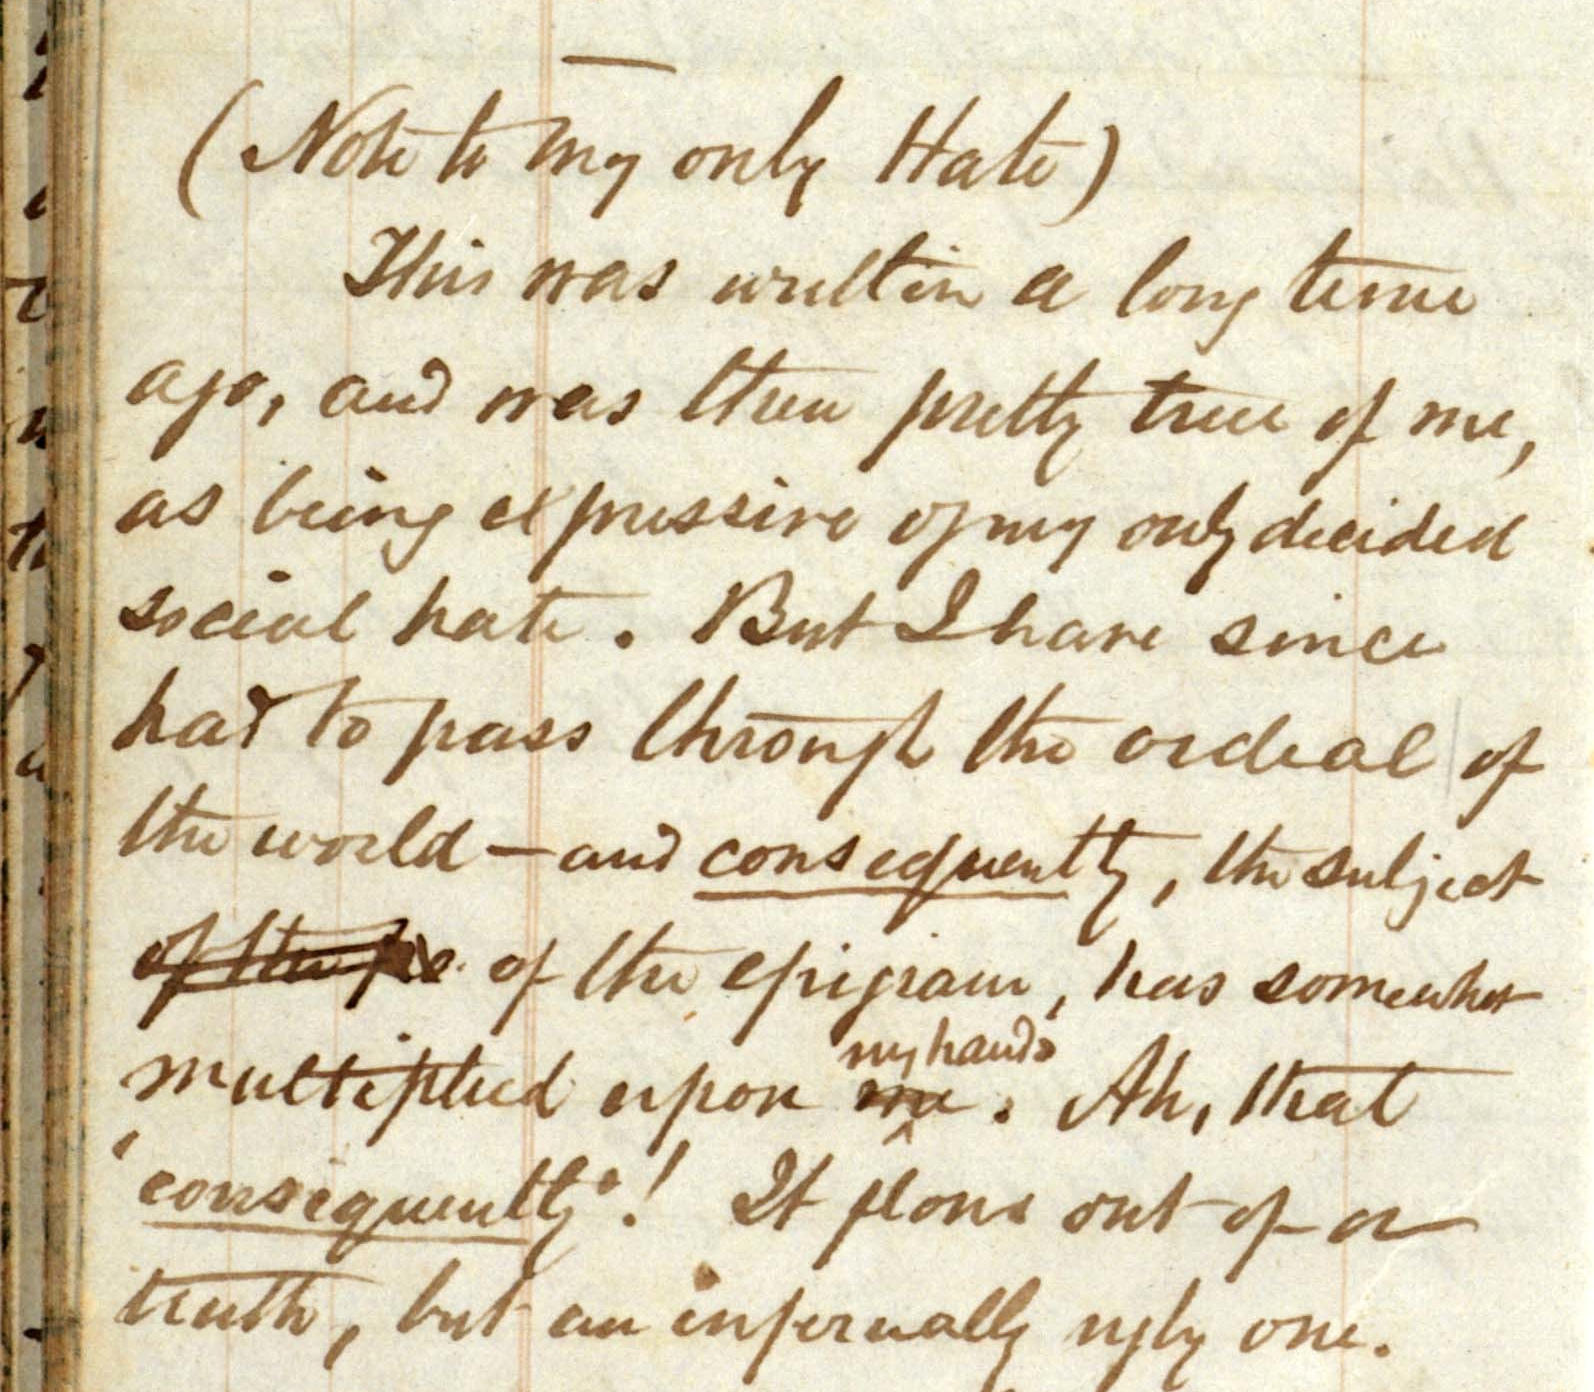 (Note to my only Hate)
This was written a long time
ago, and was then pretty true of me,
as being expressive of my only decided
social hate. But I have since
had to pass through the ordeal of
the world — and consequently, the subject
of the epigram, has somewhat
my hands
multiplied upon me. Ah, that
'consequently'! It flows out of a
truth, but an infernally ugly one.